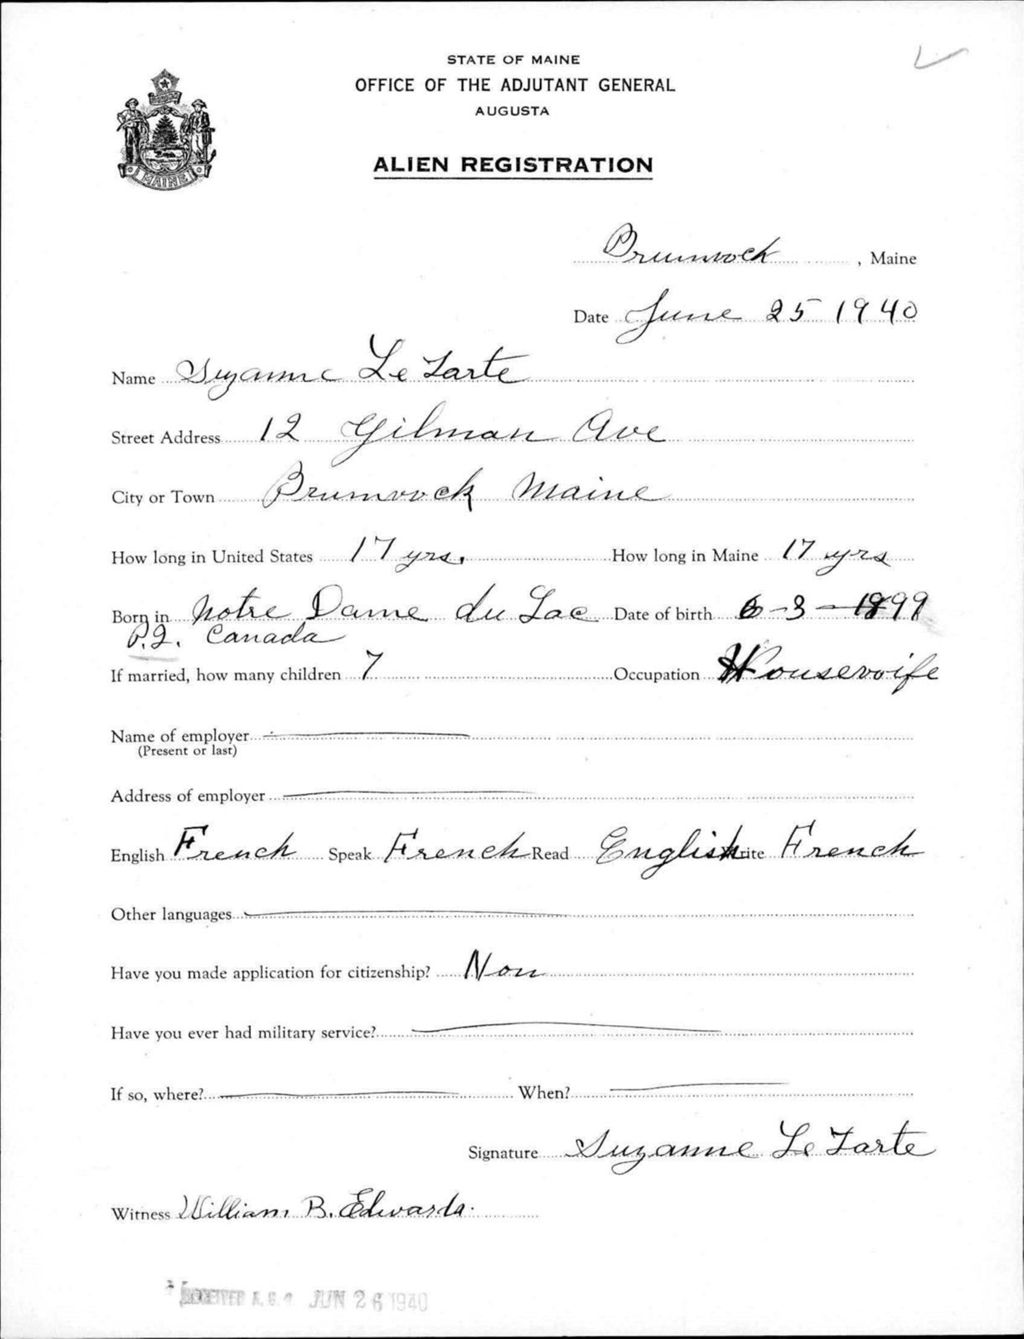 STATE OF MAINE
OFFICE OF THE ADJUTANT GENERAL
AUGUSTA
ALIEN REGISTRATION
MAINE
Brunswick, Maine
Date June 25 1940
Name Suzanne Le Tarte
Street Address 12 Gilman Ave
City or Town Brunswick Maine
How long in United States 17 yrs. How long in Maine 17 yrs
Born in Notre Dame du Lac Date of birth 6-3-1899
P.Q. Canada
If married, how many children 7 Occupation Housewife
Name of employer
(Present or last)
Address of employer
English French Speak French Read English Write French
Other languages
Have you made application for citizenship? Non
Have you ever had military service?
If so, where? When?
Signature Suzanne Le Tarte
Witness William B. Edwards.
RECEIVED A. G. O JUN 26 1940